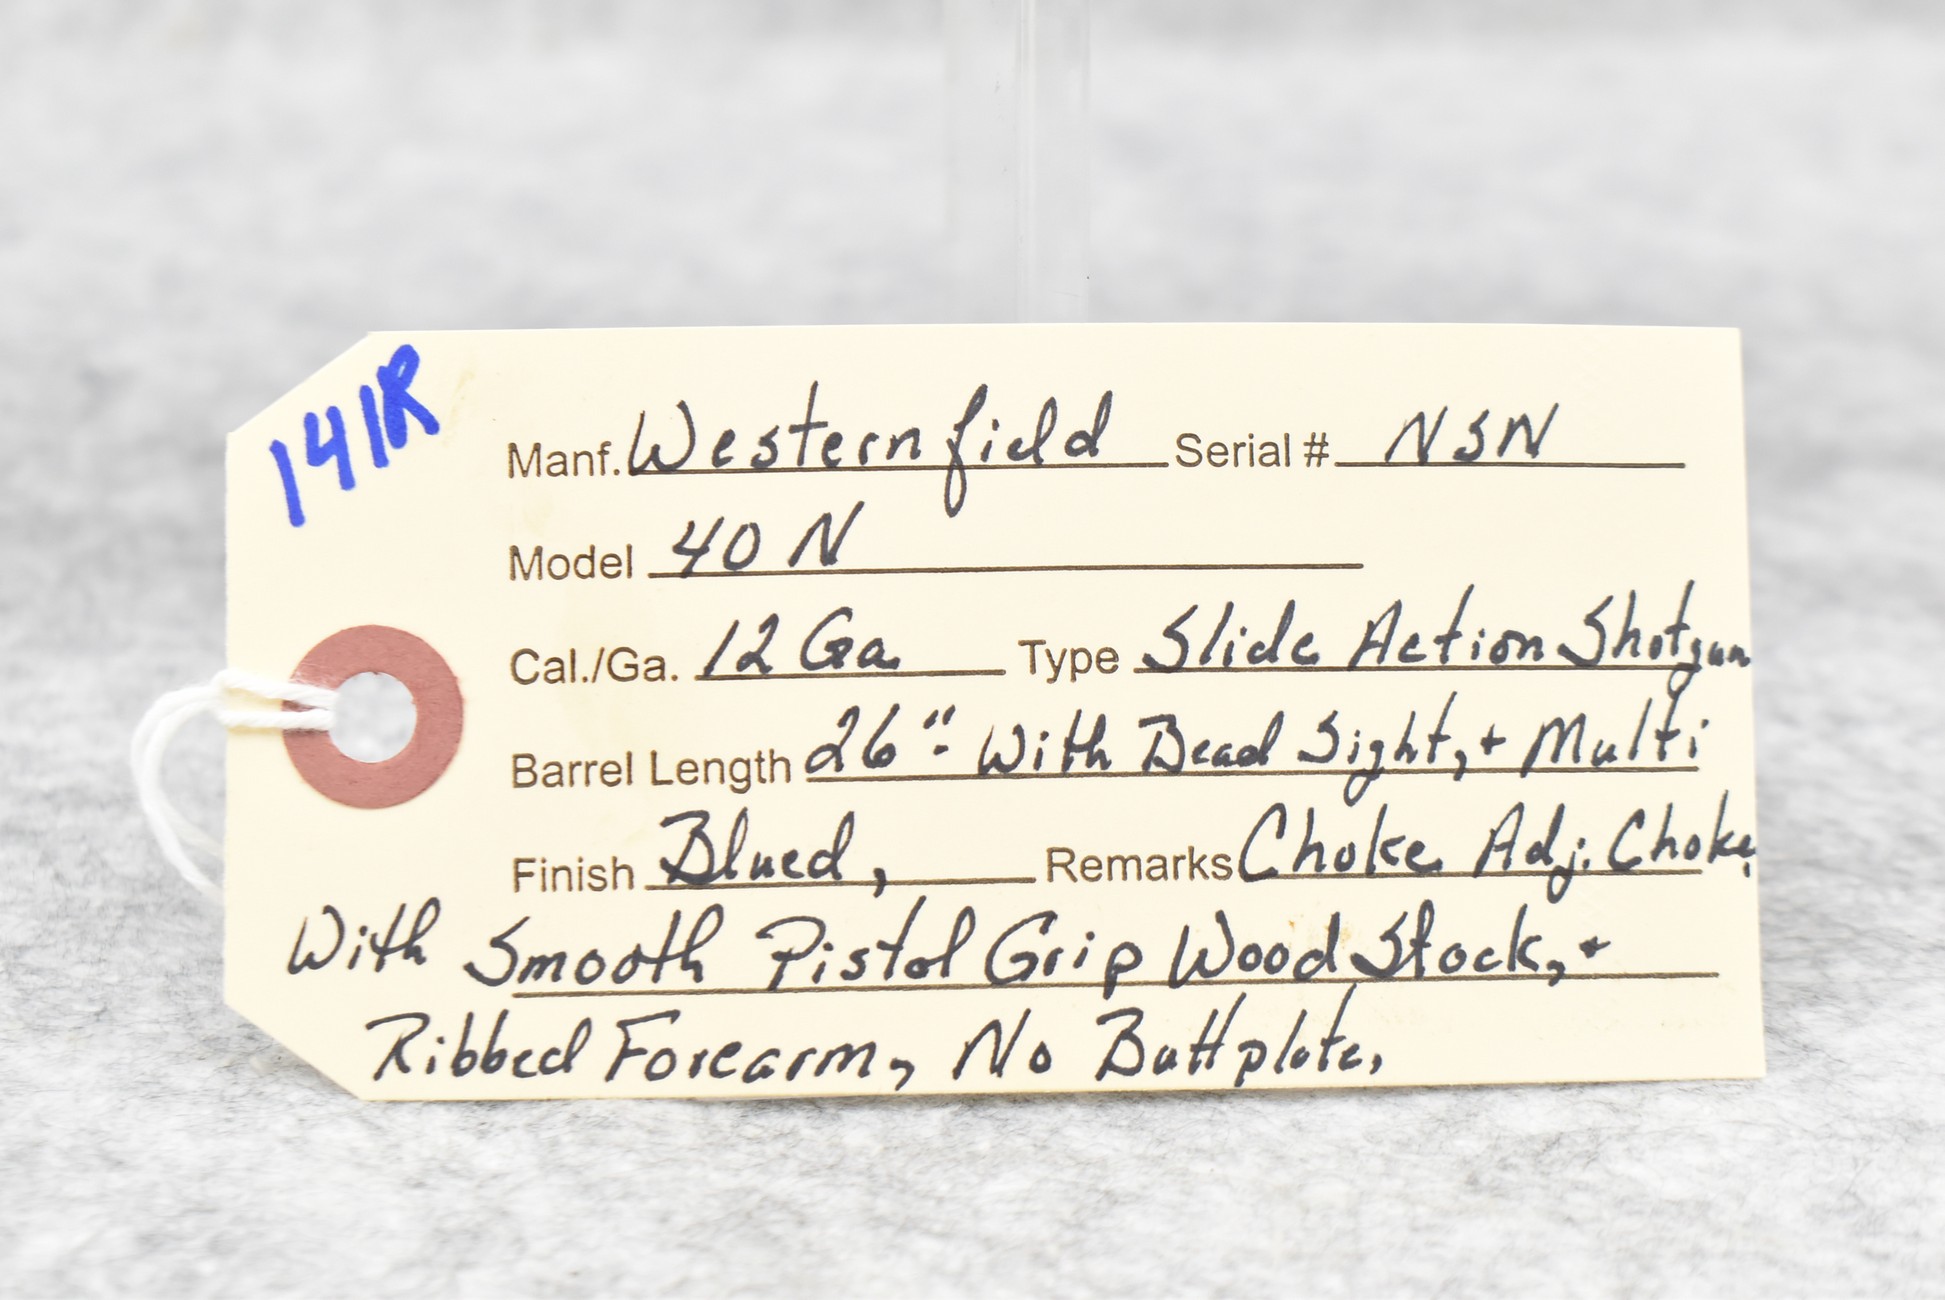 141R
Manf. Westernfield Serial # NSN
Model 40 N
Cal./Ga. 12 Ga. Type Slide Action Shotgun
Barrel Length 26" With Bead Sight, + Multi
Finish Blued, Remarks Choke Adj. Choke,
With Smooth Pistol Grip Wood Stock, +
Ribbed Forearm, No Buttplate,